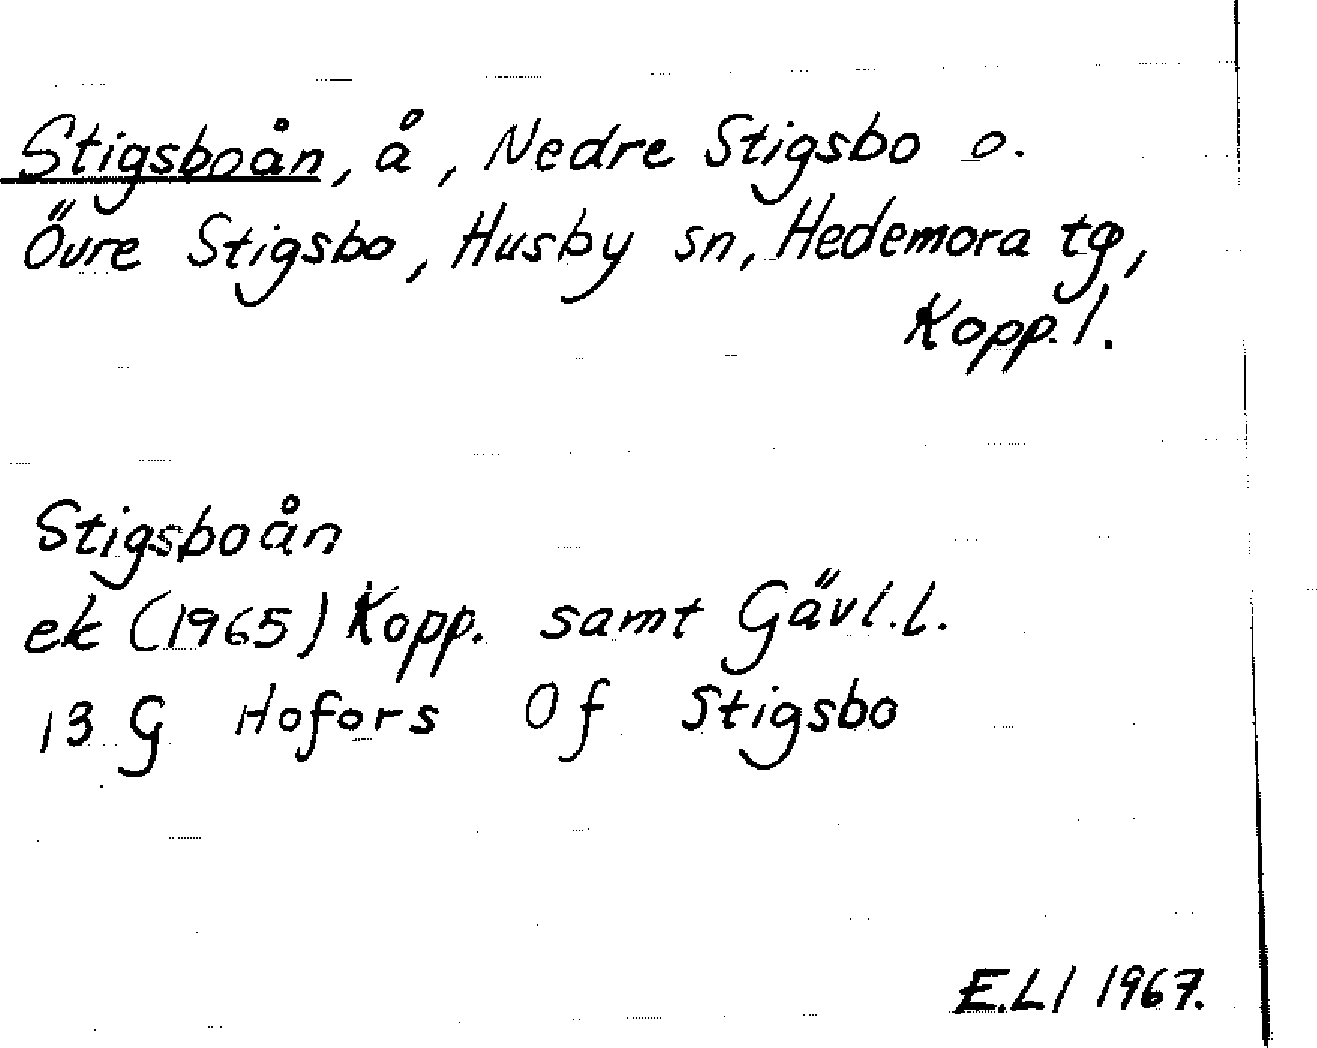 Stigsboån, å, Nedre Stigsbo o.
Övre Stigsbo, Husby sn, Hedemora tg,
Kopp. l.
Stigsboån
ek (1965) Kopp. samt Gävl. l.
13 G Hofors 0 f Stigsbo
E.Ll 1967.